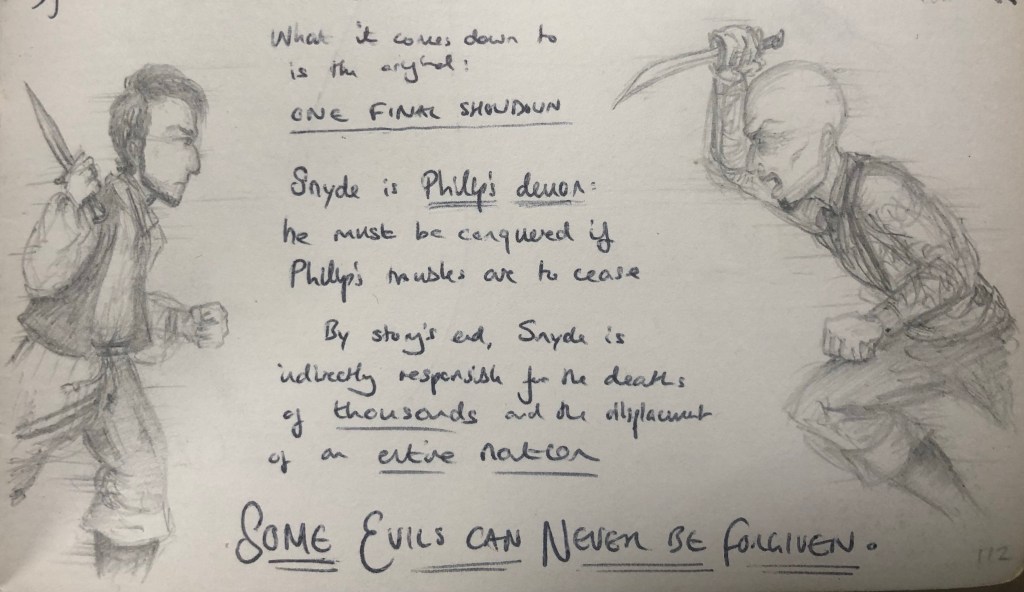 What it comes down to
is the original:
ONE FINAL SHOWDOWN
Snyde is Phillip's demon:
he must be conquered if
Phillip's troubles are to cease
By story's end, Snyde is
indirectly responsible for the deaths
of thousands and the displacement
of an entire nation
SOME EVILS CAN NEVER BE FORGIVEN.
112